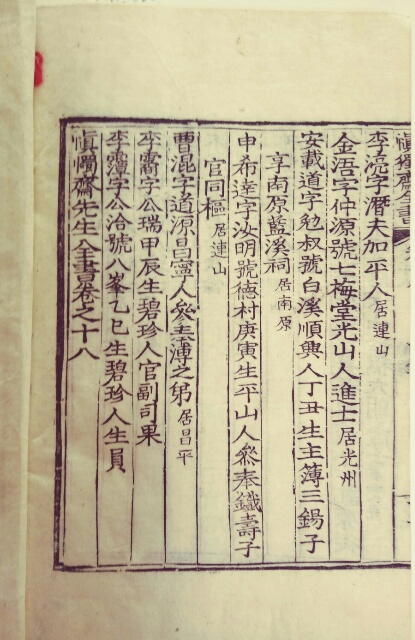 愼獨齋全書
李湸字潛夫加平人居連山
金浯字仲源號七梅堂光山人進士居光州
安載道字勉叔號白溪順興人丁丑生主簿三錫子
享南原藍溪祠居南原
申希逹字汝明號德村庚寅生平山人叅奉鐵壽子
官同樞居連山
曹混字道源昌寧人叅奉溥之弟居昌平
李霱字公瑞甲辰生碧珍人官副司果
李䨵字公洽號八峯乙巳生碧珍人生員
愼獨齋先生全書卷之十八